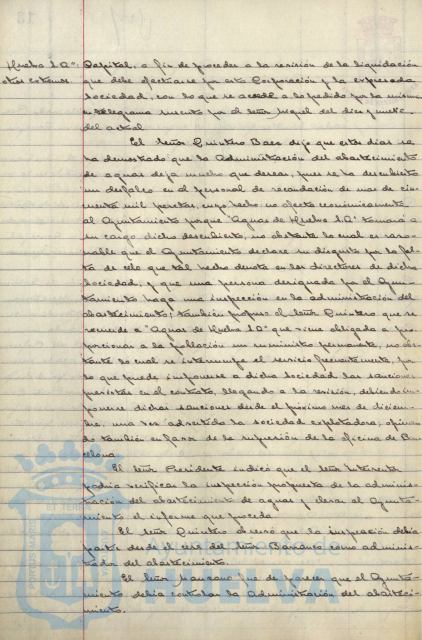 Huelva S.A." Capital, a fin de proceder a la revisión de la liquidación
otros extremos que debe efectuarse por esta Corporación y la expresada
Sociedad, con lo que se accede a lo pedido por la misma
en telegrama suscrito por el señor Miguel del diez y nueve
del actual
El señor Quintero Baez dijo que estos días se
ha demostrado que la Administración del abastecimiento
de aguas deja mucho que desear, pues se ha descubierto
un desfalco en el personal de recaudación de mas de cin-
cuenta mil pesetas, cuyo hecho no afecta económicamente
al Ayuntamiento porque "Aguas de Huelva S.A." tomará a
su cargo dicho descubierto, no obstante lo cual es razo-
nable que el Ayuntamiento declare su disgusto por la fal-
ta de celo que tal hecho denota en los directores de dicha
Sociedad, y que una persona designada por el Ayun-
tamiento haga una inspección en la administración del
abastecimiento; también propuso el señor Quintero que se
recuerde a "Aguas de Huelva S.A." que viene obligado a pro-
porcionar a la población un suministro permanente, no obs-
tante lo cual se interrumpe el servicio frecuentemente, por
lo que puede imponerse a dicha Sociedad las sanciones
previstas en el contrato, llegando a la revisión, debiendo im-
ponerse dichas sanciones desde el próximo mes de diciem-
bre, una vez advertida la sociedad explotadora, opinan-
do también en favor de la supresión de la oficina de Bar-
celona.
El señor Presidente indicó que el señor Interventor
podía verificar la inspección propuesta de la adminis-
tración del abastecimiento de aguas y elevar al Ayunta-
miento el informe que proceda
El señor Quintero observó que la inspección debía
partir desde el cese del señor Barranco como adminis-
trador del abastecimiento.
El señor Manzano fue de parecer que el Ayunta-
miento debía controlar la Administración del abasteci-
miento.
Ayuntamiento de
HUELVA